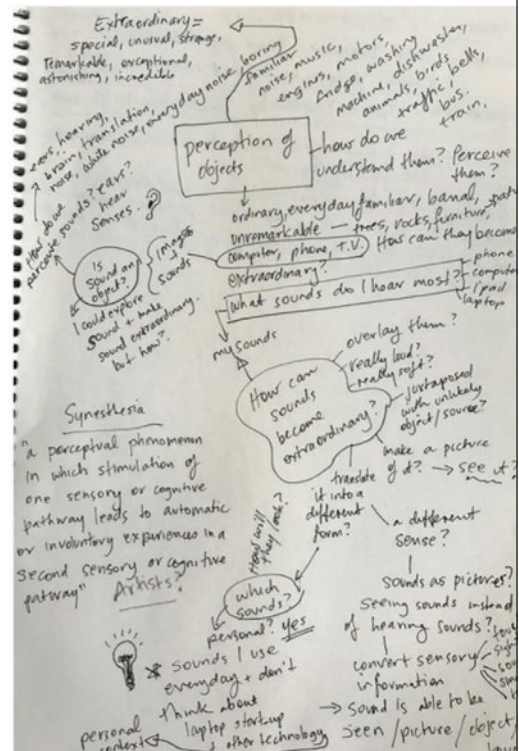 Extraordinary =
special, unusual, strange,
remarkable, exceptional,
astonishing, incredible
ears, hearing,
brain, translation,
noise, white noise, everyday noise boring
familiar
noise, music,
engines, motors,
fridge, washing
machine, dishwasher,
animals, birds,
traffic, bells,
train, bus.
perception of
objects
how do we
understand them? Perceive
them?
ordinary, everyday, familiar, banal,
unremarkable — trees, rocks, furniture,
computer, phone, T.V.
How can they become
extraordinary?
How do we
perceive sounds? ears?
hear
senses.
?
Is
sound an
object?
images
+
sounds
I could explore
sound + make
sound extraordinary.
but how?
What sounds do I hear most?
phone
computer
ipad
laptop
my sounds
How can
sounds
become
extraordinary?
overlay them?
really loud?
really soft?
juxtaposed
with unlikely
object/source?
make a picture
of it? → see it?
translate
it into a
different
form?
a different
sense?
Synesthesia
"a perceptual phenomenon
in which stimulation of
one sensory or cognitive
pathway leads to automatic
or involuntory experiences in a
second sensory or cognitive
patway"
Artists?
How will
they look?
which
sounds?
personal? yes
sounds I use
everyday + don't
think about
laptop startup
+ other technology
personal
context
sounds as pictures?
seeing sounds instead
of hearing sounds?
convert sensory
information
→ sound is able to be
seen / picture / object /